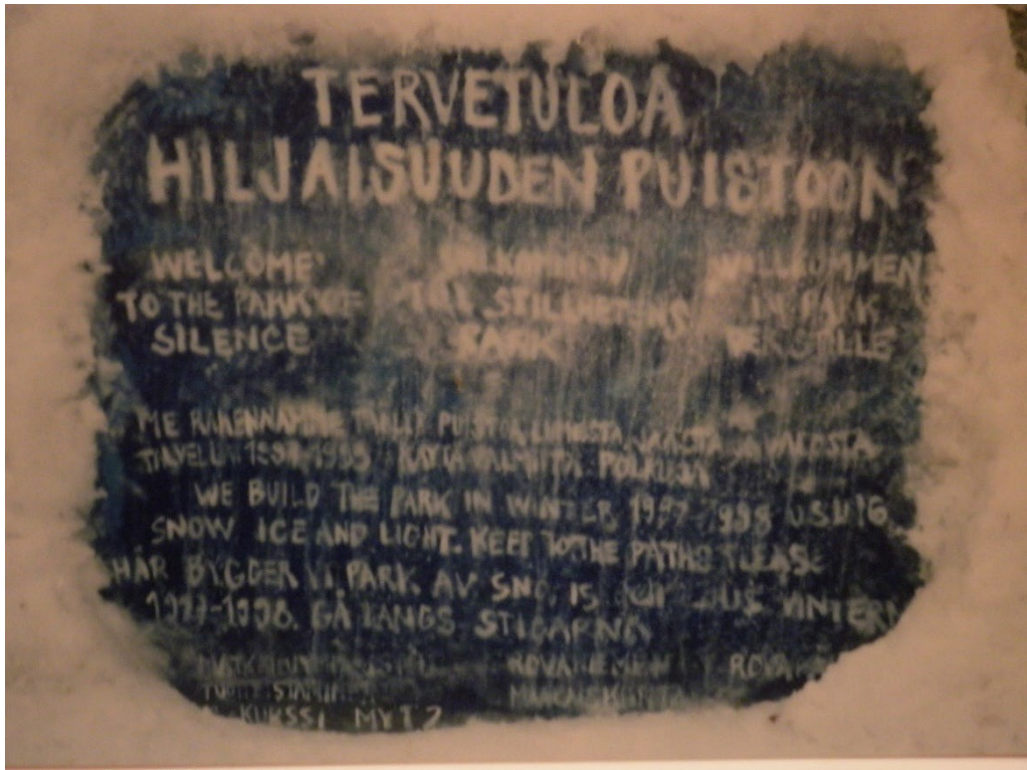 TERVETULOA
HILJAISUUDEN PUISTOON
WELCOME
TO THE PARK OF
SILENCE
VÄLKOMMEN
TILL STILLHETENS
PARK
WILLKOMMEN
IM PARK
DER STILLE
ME RAKENNAMME TÄMÄN PUISTON LUMESTA JÄÄSTÄ JA VALOSTA
TALVELLA 1997-1998 KÄYTÄ VALMIITA POLKUJA
WE BUILD THE PARK IN WINTER 1997-1998 USING
SNOW ICE AND LIGHT. KEEP TO THE PATHS PLEASE
HÄR BYGGER VI PARK AV SNÖ, IS OCH LJUS VINTERN
1997-1998. GÅ LÄNGS STIGARNA
ROVANIEMEN
KURSSI MYT2